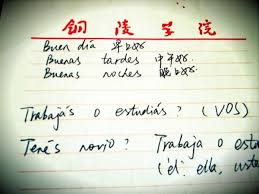 銅陵学院
Buen día 早上好
Buenas tardes 中午好
Buenas noches 晚上好
Trabajás o estudiás? (VOS)
Tenés novio? Trabaja o estu
(él, ella, uste